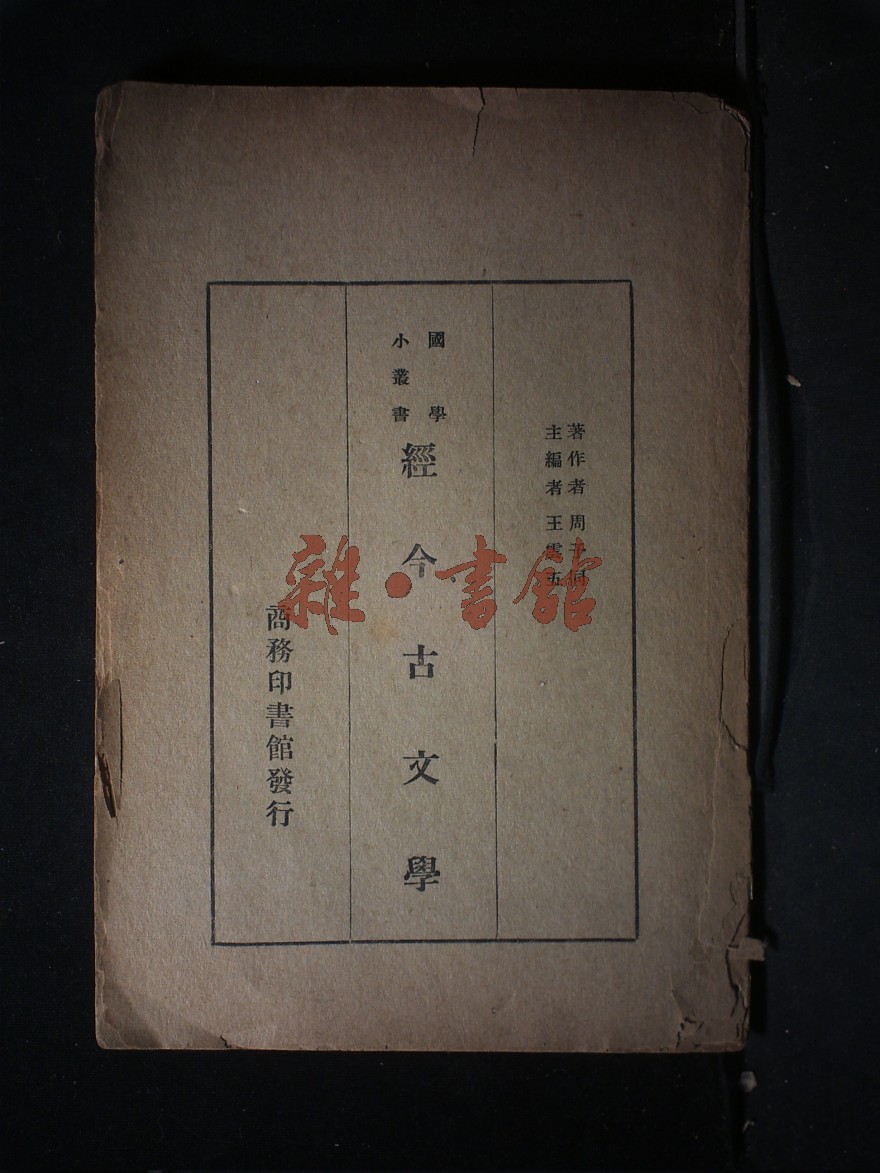 著作者 周予同
主編者 王雲五
國學
小叢書
經今古文學
商務印書館發行
雜·書館